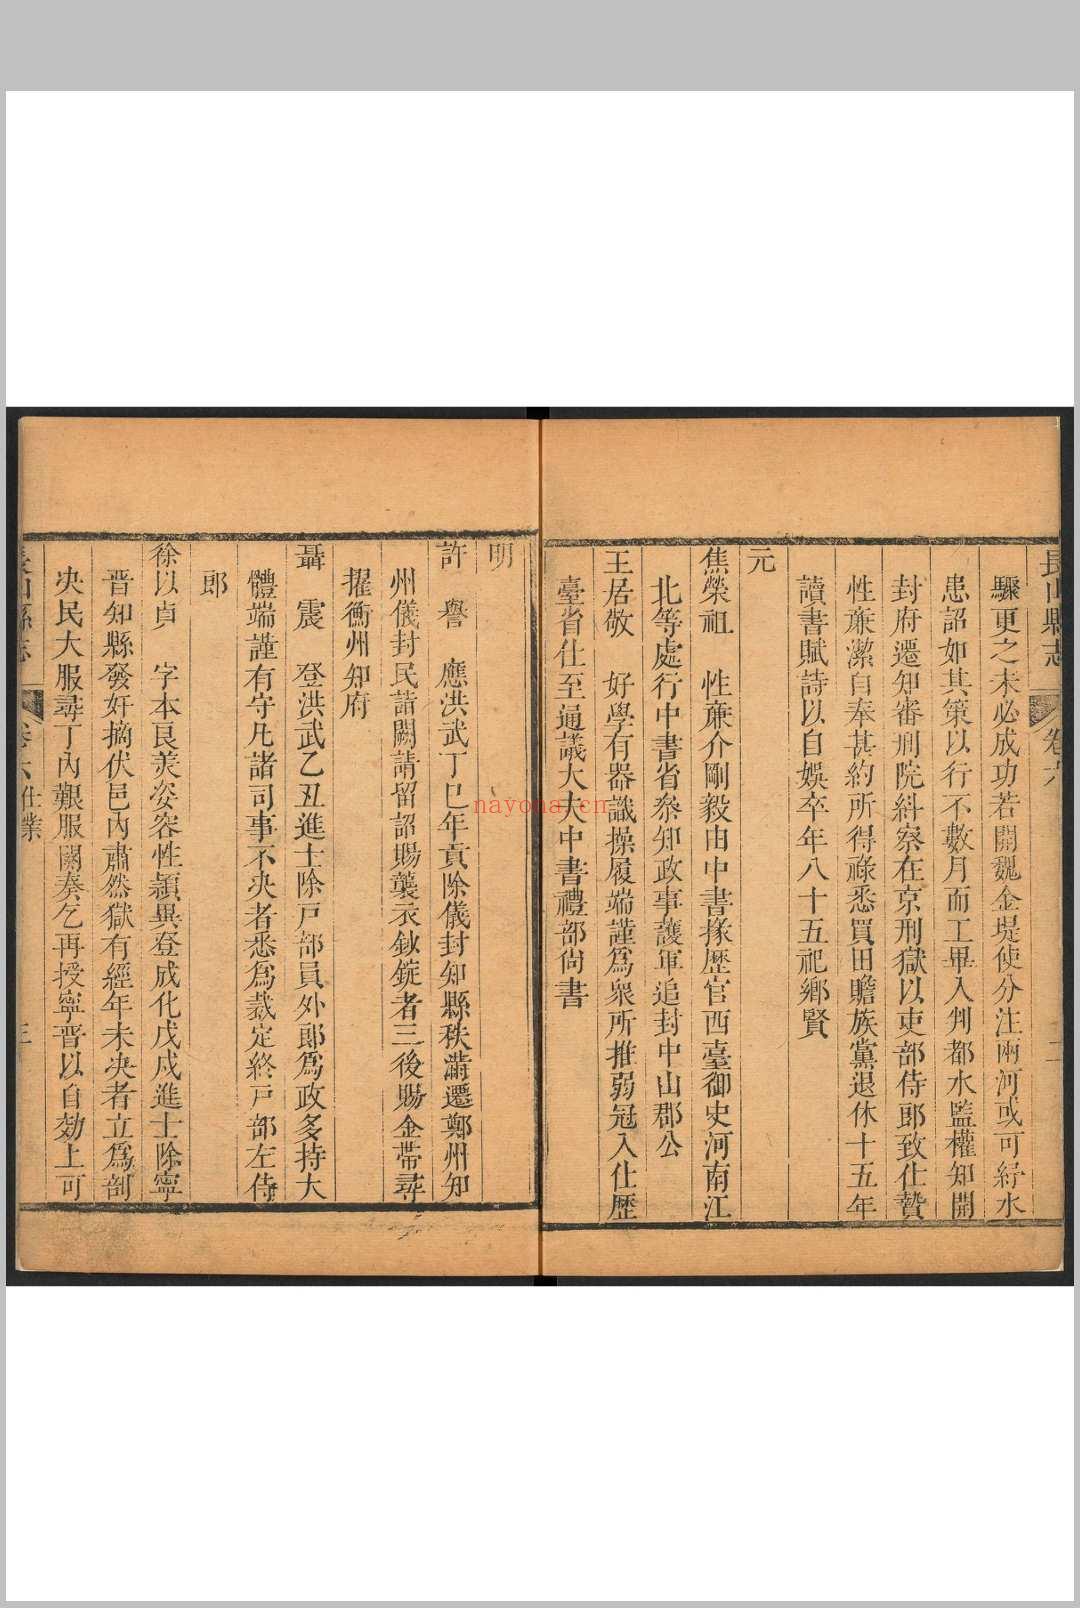 長山縣志 卷六 二
驟更之未必成功若開魏金堤使分注兩河或可紓水
患詔如其策以行不數月而工畢入判都水監權知開
封府遷知審刑院糾察在京刑獄以吏部侍郎致仕贄
性亷潔自奉甚約所得祿悉買田贍族黨退休十五年
讀書賦詩以自娛卒年八十五祀鄉賢
元
焦榮祖 性亷介剛毅由中書掾歷官西臺御史河南江
北等處行中書省叅知政事護軍追封中山郡公
王居敬 好學有器識操履端謹爲衆所推弱冠入仕歷
臺省仕至通議大夫中書禮部尙書
明
許 譽 應洪武丁巳年貢除儀封知縣秩滿遷鄭州知
州儀封民詣闕請留詔賜襲衣鈔錠者三後賜金帶尋
擢衡州知府
聶 震 登洪武乙丑進士除戸部員外郎爲政多持大
體端謹有守凡諸司事不决者悉爲裁定終戸部左侍
郎
徐以貞 字本良美姿容性穎異登成化戊戌進士除寧
晋知縣發奸摘伏邑內肅然獄有經年未决者立爲剖
决民大服尋丁內艱服闋奏乞再授寧晋以自効上可
長山縣志 卷六 仕業 三
nayona.cn